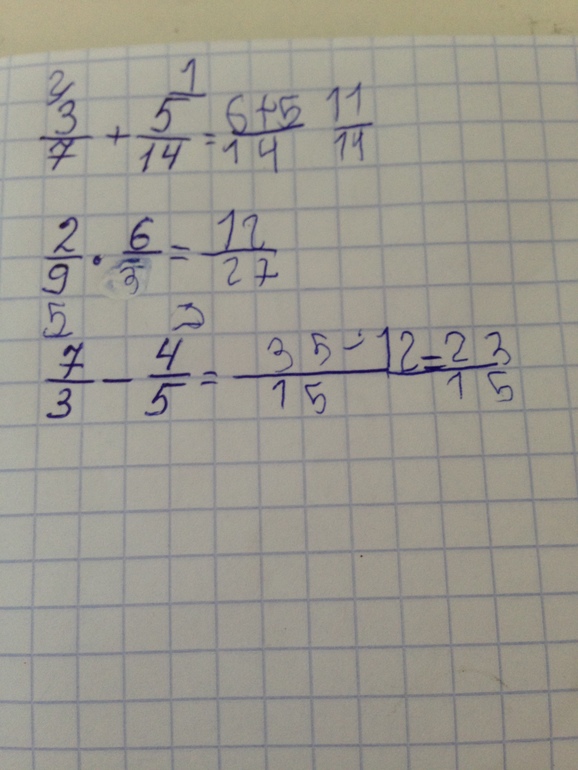 2 1
3/7 + 5/14 = 6+5/14 11/14
2/9 · 6/3 = 12/27
5 3
7/3 - 4/5 = 35-12/15 = 23/15